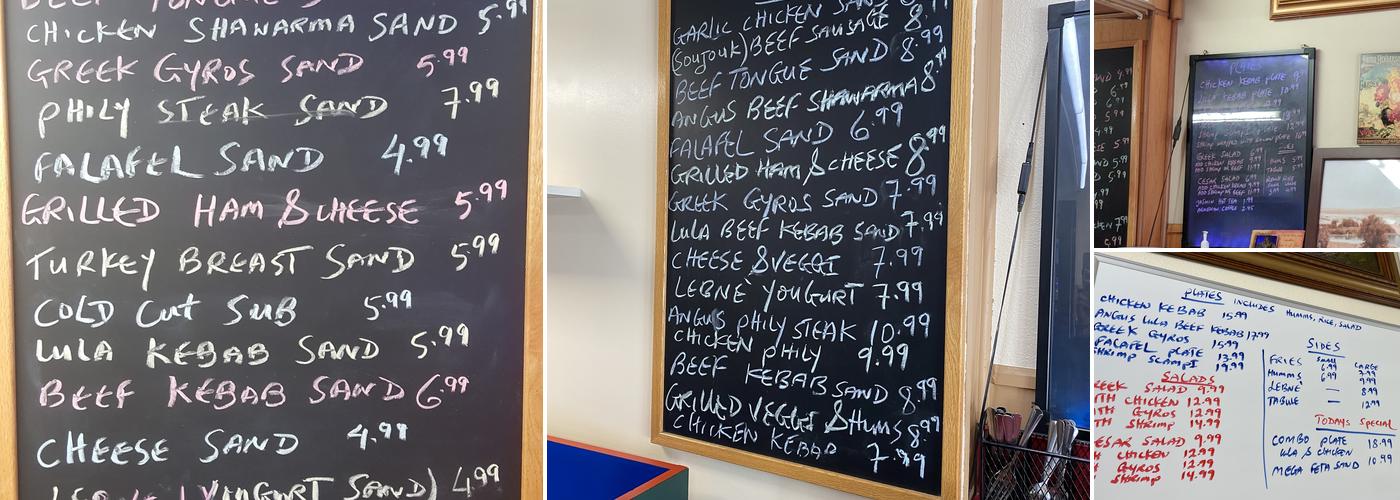 BEEF TONGUE SAND
CHICKEN SHAWARMA SAND 5.99
GREEK GYROS SAND 5.99
PHILY STEAK SAND 7.99
FALAFEL SAND 4.99
GRILLED HAM & CHEESE 5.99
TURKEY BREAST SAND 5.99
COLD CUT SUB 5.99
LULA KEBAB SAND 5.99
BEEF KEBAB SAND 6.99
CHEESE SAND 4.99
YOUGURT SAND) 4.99
GARLIC CHICKEN SAND
(SOUJOUK) BEEF SAUSAGE 8.99
BEEF TONGUE SAND 8.99
ANGUS BEEF SHAWARMA 8.99
FALAFEL SAND 6.99
GRILLED HAM & CHEESE 8.99
GREEK GYROS SAND 7.99
LULA BEEF KEBAB SAND 7.99
CHEESE & VEGGI 7.99
LEBNE YOUGURT 7.99
ANGUS PHILY STEAK 10.99
CHICKEN PHILY 9.99
BEEF KEBAB SAND 8.99
GRILLED VEGGI & HUMS 8.99
CHICKEN KEBAB 7.99
PLATES
CHICKEN KEBAB PLATE
LULA KEBAB PLATE
GREEK SALAD
CESAR SALAD
PLATES INCLUDES HUMMS, RICE, SALAD
CHICKEN KEBAB 15.99
ANGUS LULA BEEF KEBAB 17.99
GREEK GYROS 15.99
FALAFEL PLATE 13.99
SHRIMP SCAMPI 19.99
SALADS
EEK SALAD 9.99
TH CHICKEN 12.99
TH GYROS 12.99
TH SHRIMP 14.99
ESAR SALAD 9.99
CHICKEN 12.99
GYROS 12.99
SHRIMP 14.99
SIDES
SMALL LARGE
FRIES 6.99
HUMMS 6.99 9.99
LEBNE — 8.99
TABULE — 12.99
TODAYS SPECIAL
COMBO PLATE 18.99
LULA & CHICKEN
MEGA FETA SAND 10.99